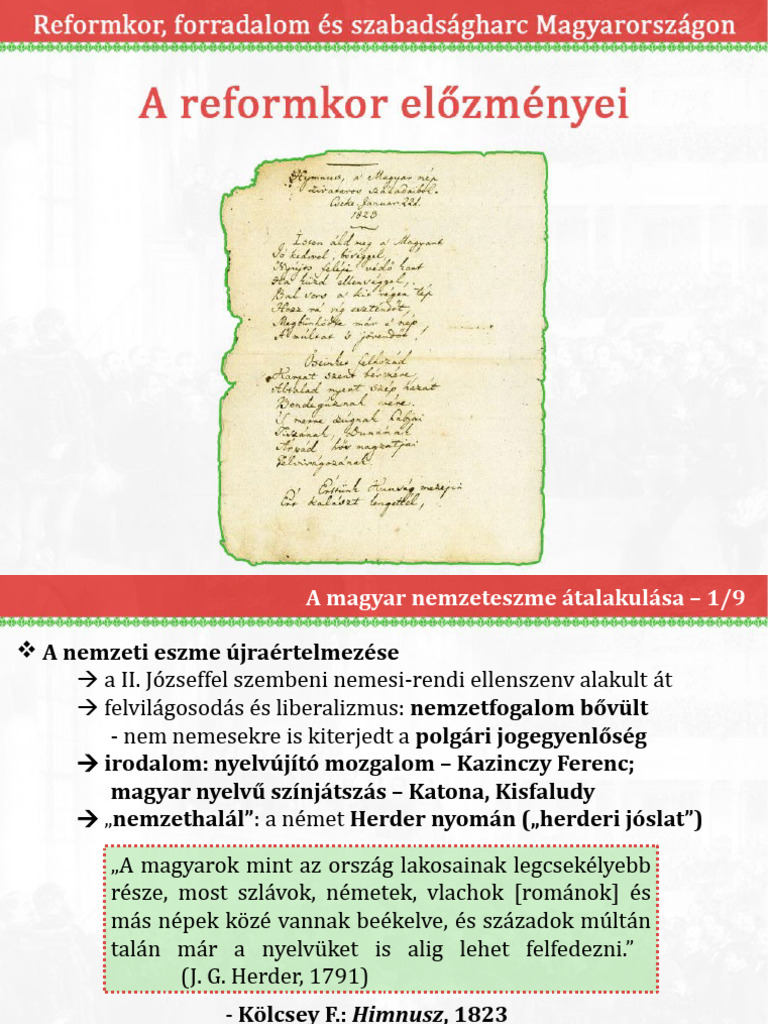 Reformkor, forradalom és szabadságharc Magyarországon
A reformkor előzményei
Hymnus, a Magyar nép
zivataros századaiból.
Cseke Januar 22d.
1823
Isten áld meg a Magyart
Jó kedvvel, bőséggel,
Nyújts feléje védő kart
Ha küzd ellenséggel,
Bal sors a kit régen tép
Hozz rá víg esztendőt,
Megbünhödte már e nép
A múltat s jövendőt!
Őseinket felhozád
Kárpát szent bérczére,
Által nyert szép hazát
Bendegúznak vére.
S merre zúgnak habjai
Tiszának, Dunának
Árpád hős magzatjai
Felvirágozának.
Értünk Kunság mezején
Ért kalászt lengettél,
A magyar nemzeteszme átalakulása – 1/9
❖ A nemzeti eszme újraértelmezése
→ a II. Józseffel szembeni nemesi-rendi ellenszenv alakult át
→ felvilágosodás és liberalizmus: nemzetfogalom bővült
- nem nemesekre is kiterjedt a polgári jogegyenlőség
→ irodalom: nyelvújító mozgalom – Kazinczy Ferenc;
magyar nyelvű színjátszás – Katona, Kisfaludy
→ „nemzethalál”: a német Herder nyomán („herderi jóslat”)
„A magyarok mint az ország lakosainak legcsekélyebb
része, most szlávok, németek, vlachok [románok] és
más népek közé vannak beékelve, és századok múltán
talán már a nyelvüket is alig lehet felfedezni.”
(J. G. Herder, 1791)
- Kölcsey F.: Himnusz, 1823